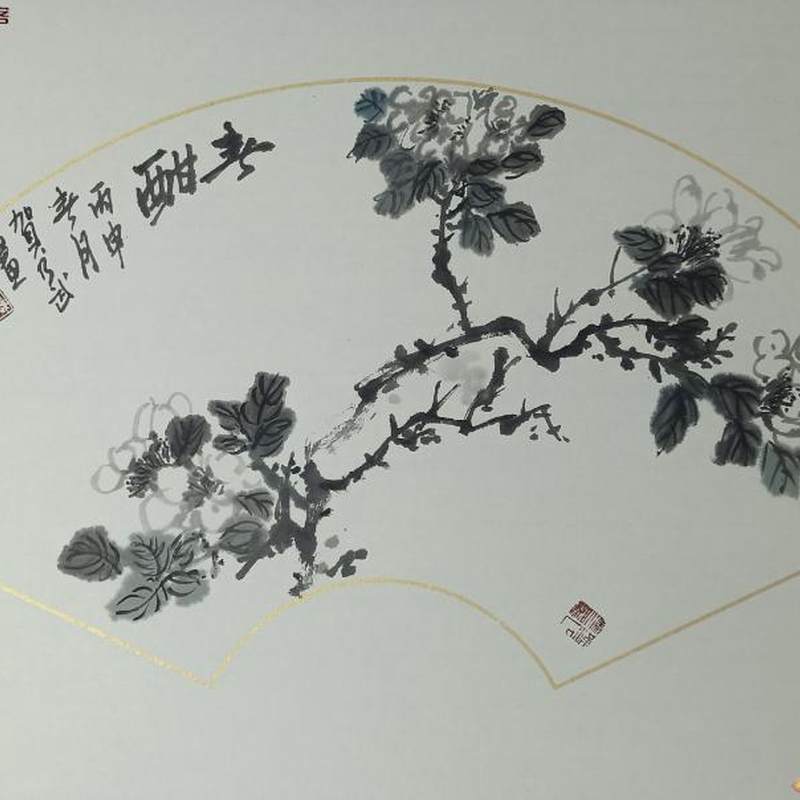 春酣
丙申
春月
賀乃武
畫